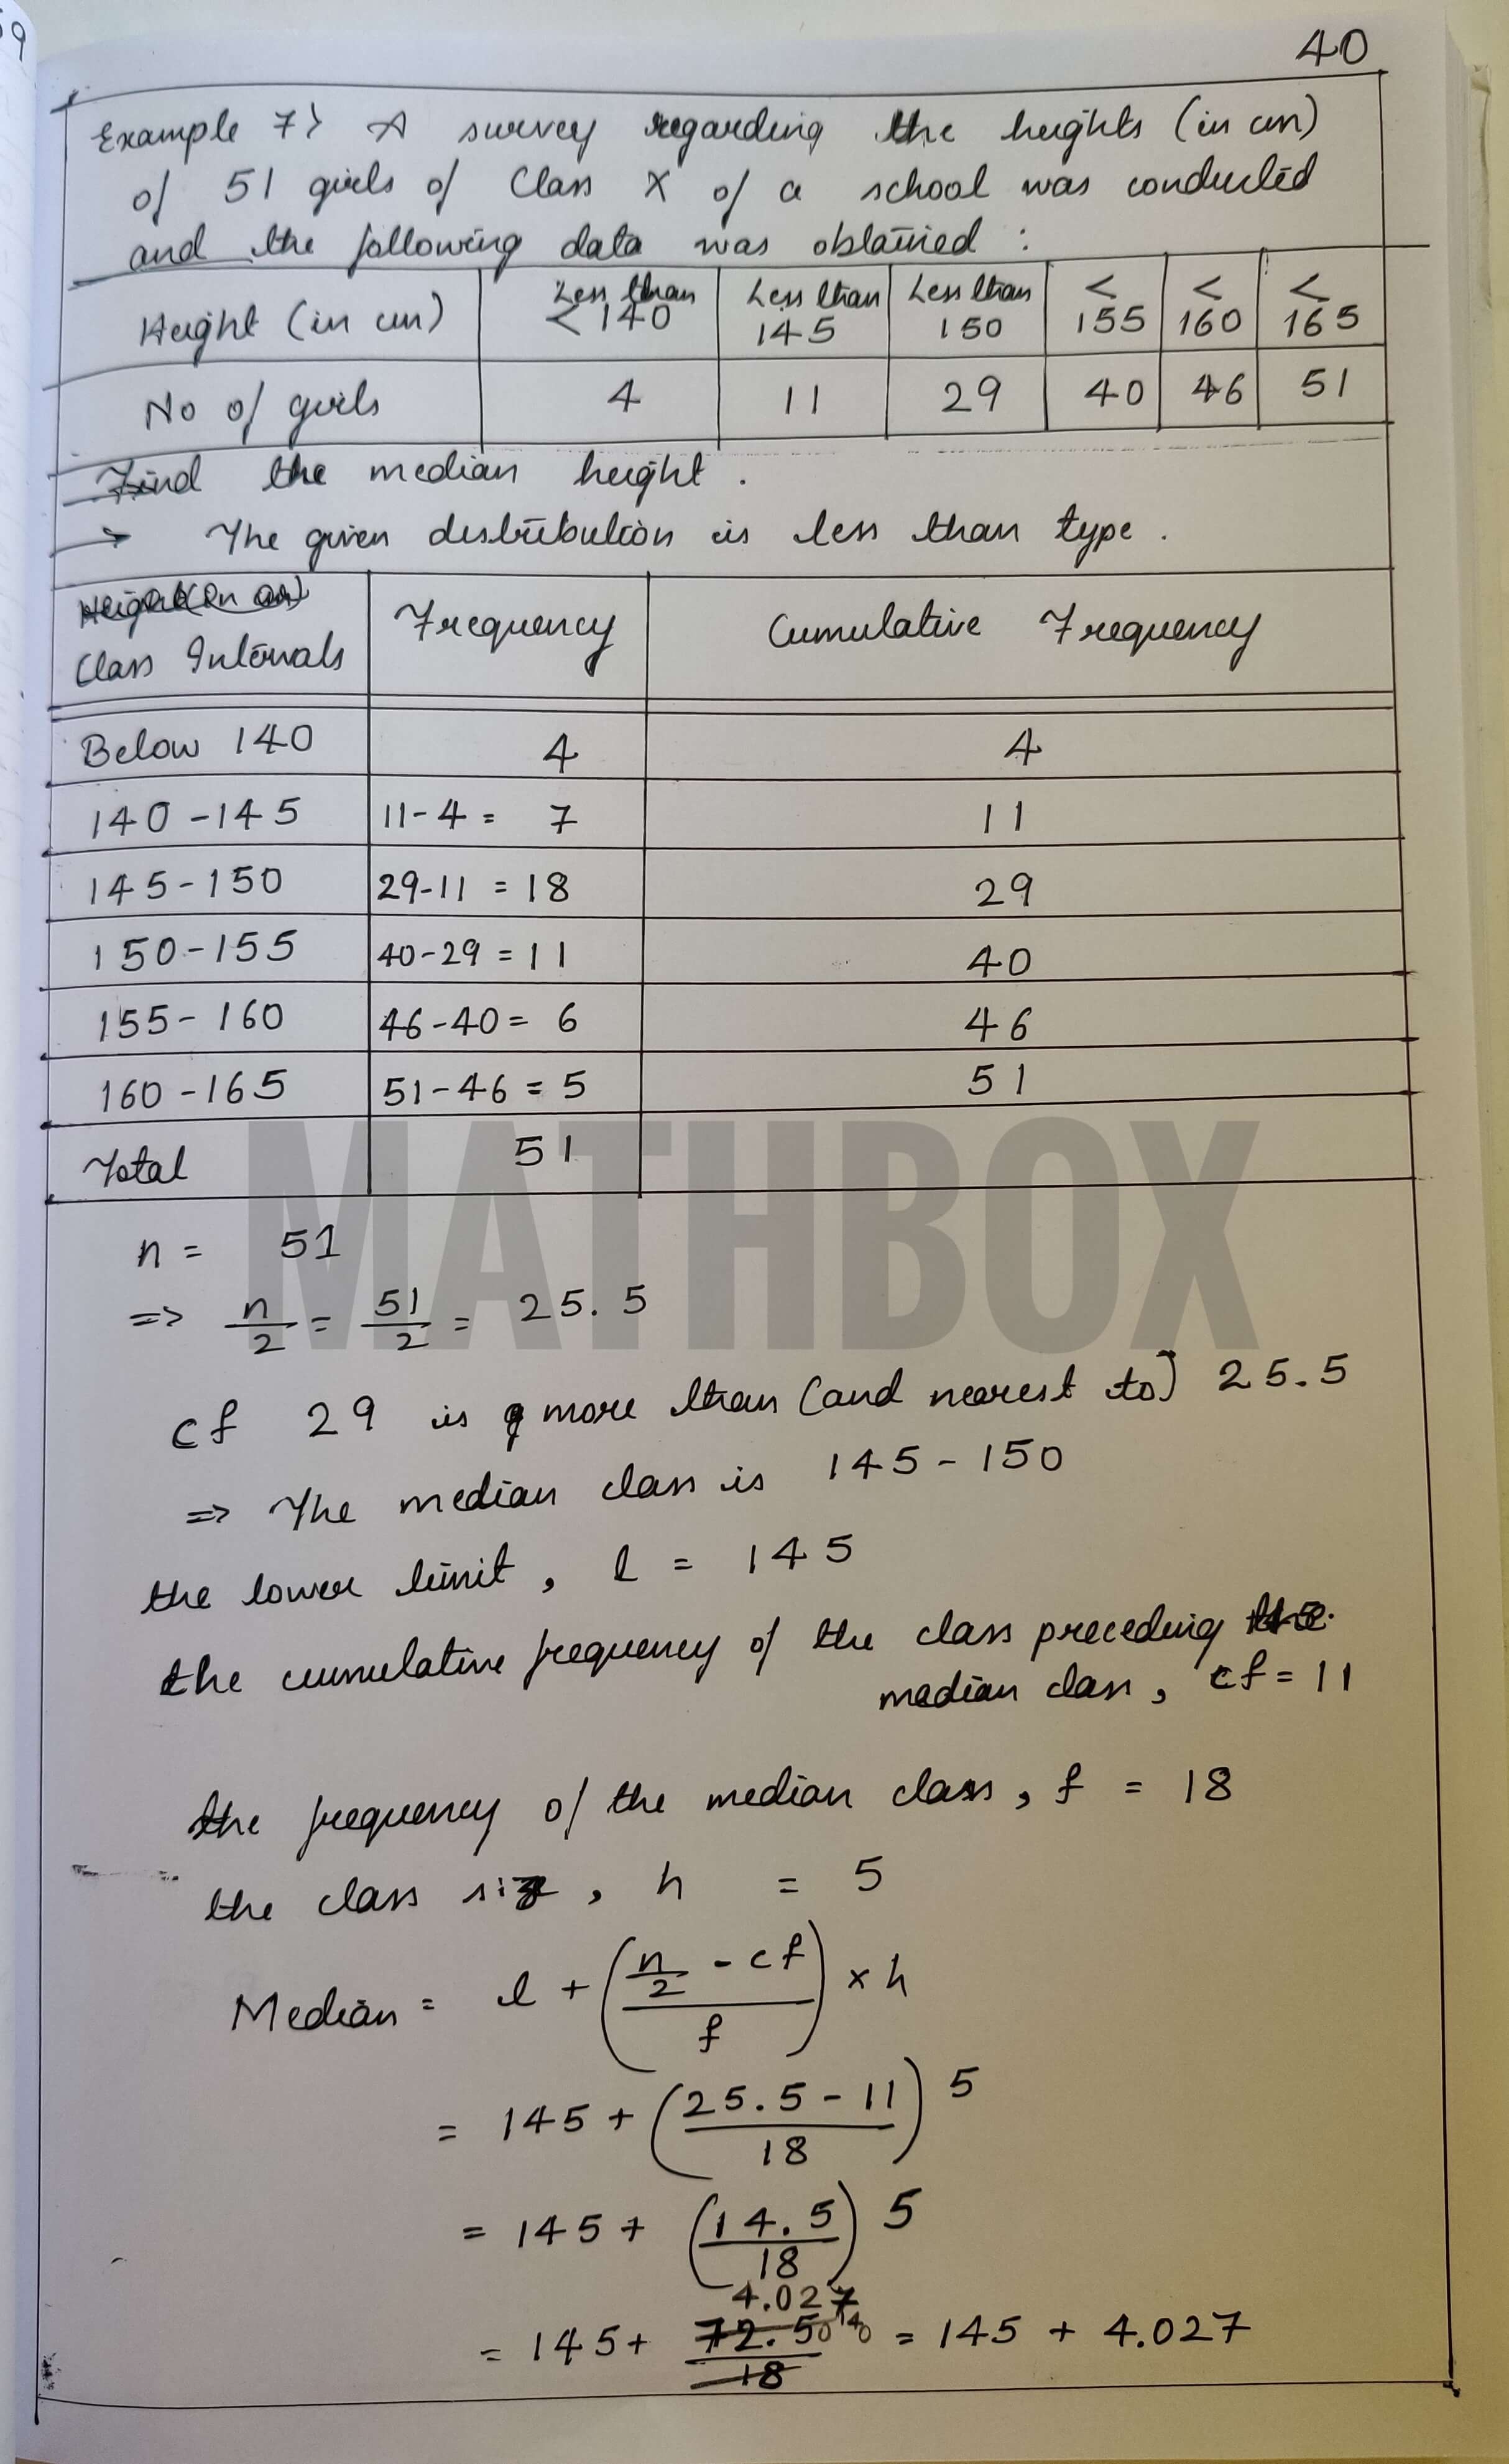 59
40
Example 7> A survey regarding the heights (in cm)
of 51 girls of Class X of a school was conducted
and the following data was obtained :
Height (in cm) Less than < 140 Less than 145 Less than 150 < 155 < 160 < 165
No of girls 4 11 29 40 46 51
Find the median height .
→ The given distribution is less than type .
Height (in cm)
Class Intervals Frequency Cumulative Frequency
Below 140 4 4
140 - 145 11 - 4 = 7 11
145 - 150 29 - 11 = 18 29
150 - 155 40 - 29 = 11 40
155 - 160 46 - 40 = 6 46
160 - 165 51 - 46 = 5 51
Total 51
MATHBOX
n = 51
=> n/2 = 51/2 = 25.5
cf 29 is more than (and nearest to) 25.5
=> The median class is 145 - 150
the lower limit , l = 145
the cumulative frequency of the class preceding the
median class , cf = 11
the frequency of the median class , f = 18
the class size , h = 5
Median = l + ((n/2 - cf)/f) × h
= 145 + ((25.5 - 11)/18) 5
= 145 + (14.5/18) 5
4.027
= 145 + 72.50/18 140 = 145 + 4.027